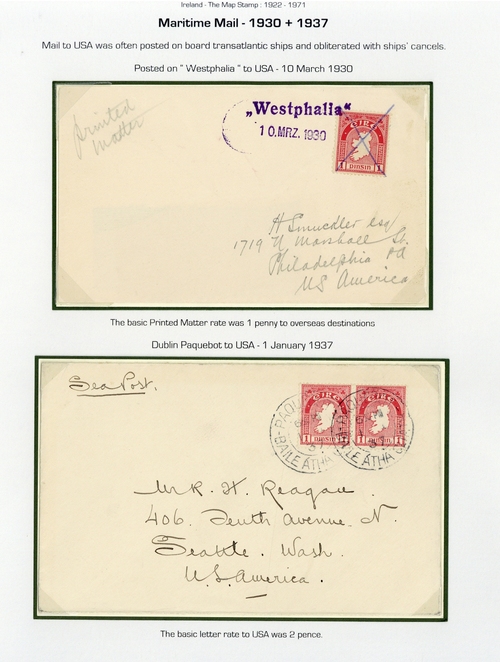 Ireland - The Map Stamp : 1922 - 1971
Maritime Mail - 1930 + 1937
Mail to USA was often posted on board transatlantic ships and obliterated with ships' cancels.
Posted on " Westphalia " to USA - 10 March 1930
printed
matter
„Westphalia“
10.MRZ. 1930
1 1
1719 N Marshall St.
Philadelphia PA
US America
The basic Printed Matter rate was 1 penny to overseas destinations
Dublin Paquebot to USA - 1 January 1937
Sea Post.
BAILE ÁTHA
1 1
Mr. H. Reagan.
406. Tenth Avenue. N.
Seattle. Wash.
U.S. America.
The basic letter rate to USA was 2 pence.